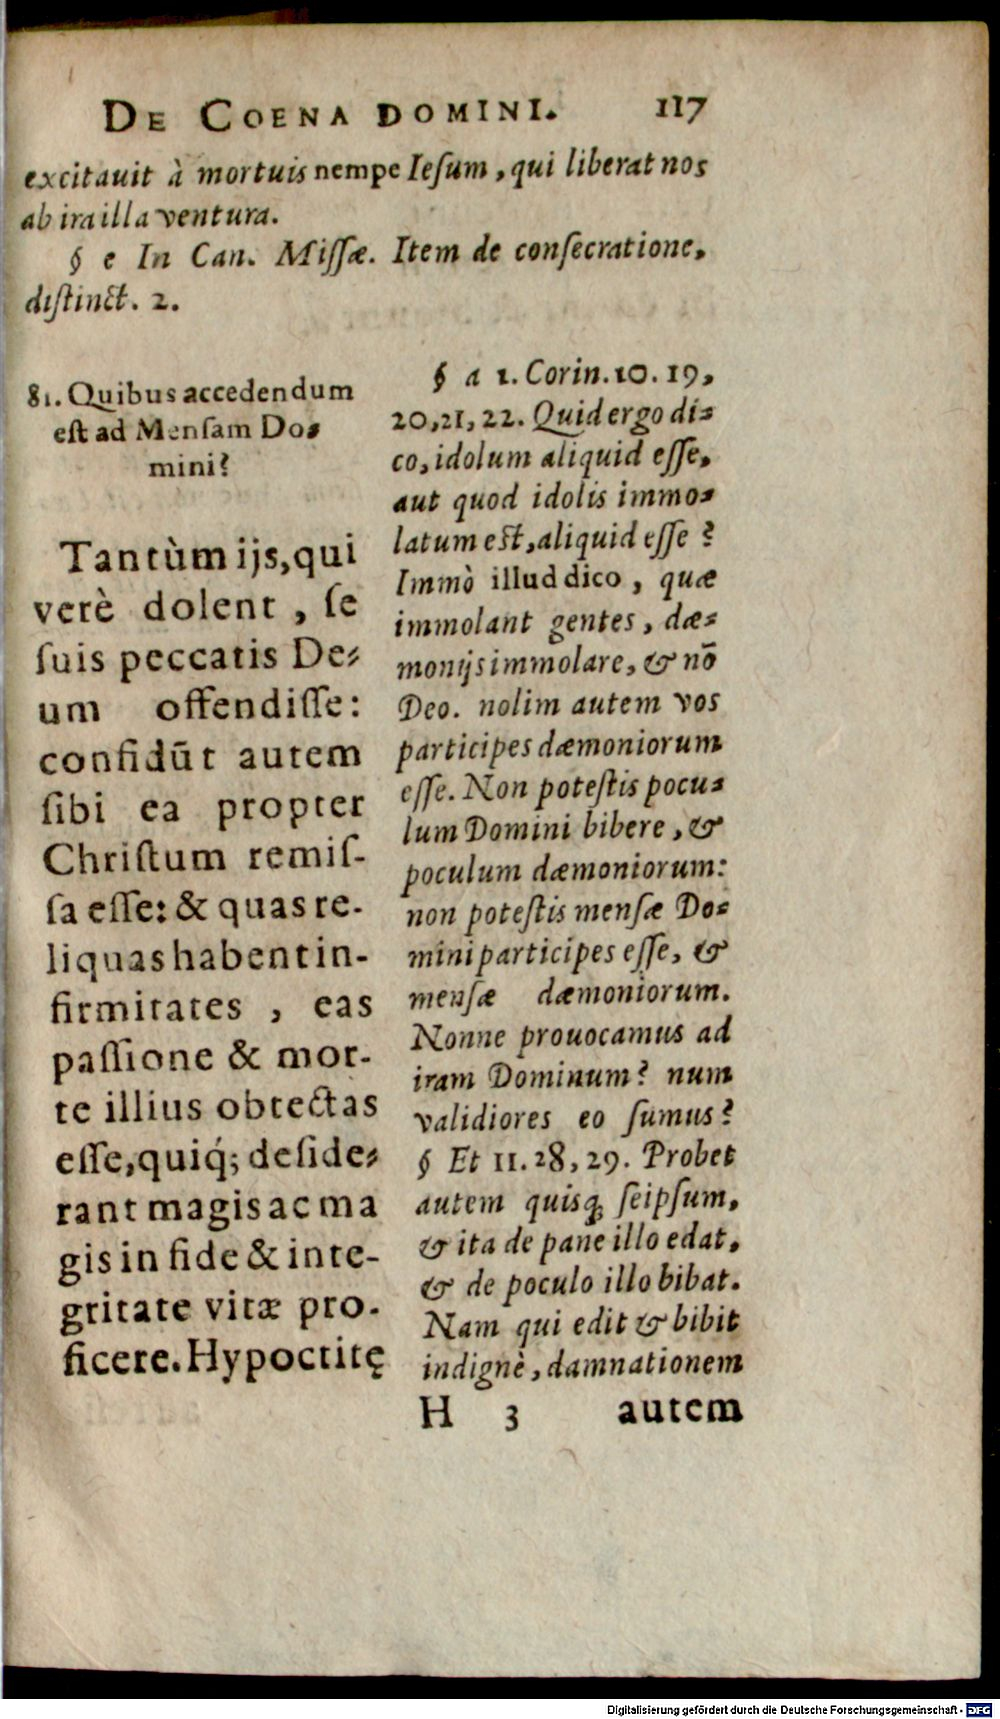 DE COENA DOMINI. 117
excitauit à mortuis nempe Ieſum, qui liberat nos
ab ira illa ventura.
§ e In Can. Miſſæ. Item de conſecratione,
diſtinct. 2.
81. Quibus accedendum
eſt ad Menſam Do-
mini?
Tantùm ijs, qui
verè dolent, ſe
ſuis peccatis De-
um offendiſſe:
confidūt autem
ſibi ea propter
Chriſtum remiſ-
ſa eſſe: & quas re-
liquas habent in-
firmitates, eas
paſſione & mor-
te illius obtectas
eſſe, quiq́; deſide-
rant magis ac ma
gis in fide & inte-
gritate vitæ pro-
ficere. Hypocritę
§ a 1. Corin. 10. 19,
20, 21, 22. Quid ergo di-
co, idolum aliquid eſſe,
aut quod idolis immo-
latum eſt, aliquid eſſe?
Immò illud dico, quæ
immolant gentes, dæ-
monijs immolare, & nō
Deo. nolim autem vos
participes dæmoniorum
eſſe. Non poteſtis pocu-
lum Domini bibere, &
poculum dæmoniorum:
non poteſtis menſæ Do-
mini participes eſſe, &
menſæ dæmoniorum.
Nonne prouocamus ad
iram Dominum? num
validiores eo ſumus?
§ Et 11. 28, 29. Probet
autem quisq; ſeipſum,
& ita de pane illo edat,
& de poculo illo bibat.
Nam qui edit & bibit
indignè, damnationem
H 3 autem
Digitalisierung gefördert durch die Deutsche Forschungsgemeinschaft - DFG